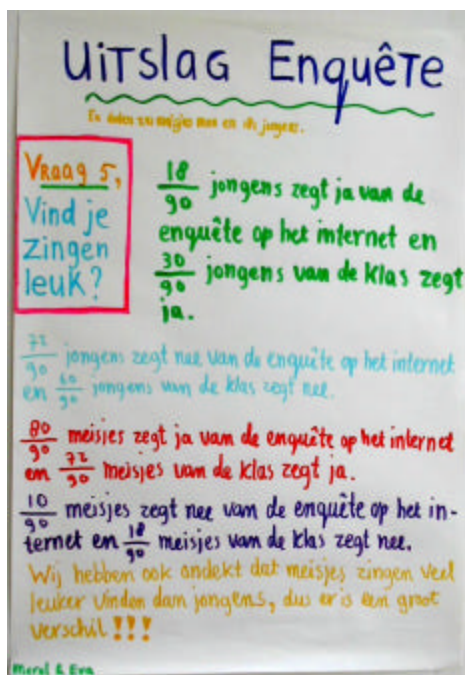 Uitslag Enquête
meisjes mee en jongens.
Vraag 5,
Vind je
zingen
leuk?
18/90 jongens zegt ja van de
enquête op het internet en
30/90 jongens van de klas zegt
ja.
72/90 jongens zegt nee van de enquête op het internet
en 60/90 jongens van de klas zegt nee.
80/90 meisjes zegt ja van de enquête op het internet
en 72/90 meisjes van de klas zegt ja.
10/90 meisjes zegt nee van de enquête op het in-
ternet en 18/90 meisjes van de klas zegt nee.
Wij hebben ook ondekt dat meisjes zingen veel
leuker vinden dan jongens, dus er is een groot
verschil!!!
Merel & Eva